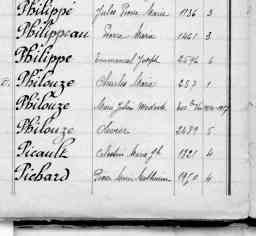 Philippe Jules Pierre Marie 1136 3
Philippeau Pierre Marie 1461 3
Philippe Emmanuel Joseph 2596 6
Philouze Charles Marie 257 1
Philouze Marie Julien
Philouze Olivier 2439 5
Picault Célestin Marie Jh 1821 4
Pichard Pierre Marie Mathurin 1950 4